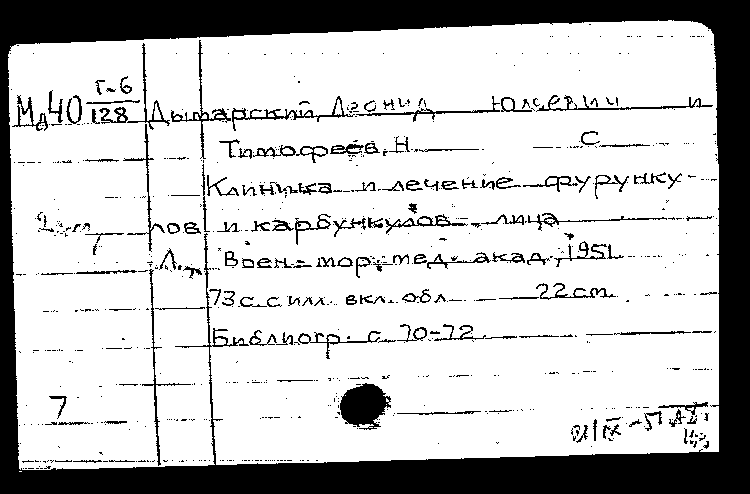 Мд40 Т-6/128 Дымарский, Леонид Юльевич и
Тимофеев, Н. С
Клиника и лечение фурунку-
лов и карбункулов лица
Л., Воен-мор. мед. акад., 1951
73 с. с илл. вкл. обл 22 cm.
Библиогр. с. 70-72.
7